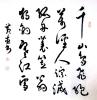 千山鳥飛絕
萬徑人踪滅
孤舟蓑笠翁
獨釣寒江雪